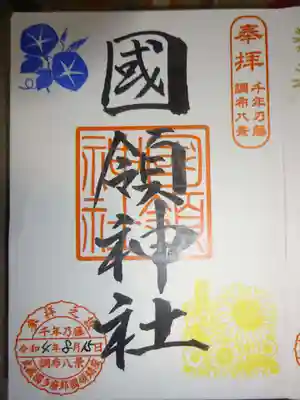 奉拝
千年乃藤
調布八景
國領神社
國領神社
奉拝之証
千年乃藤
令和4年8月15日
調布八景